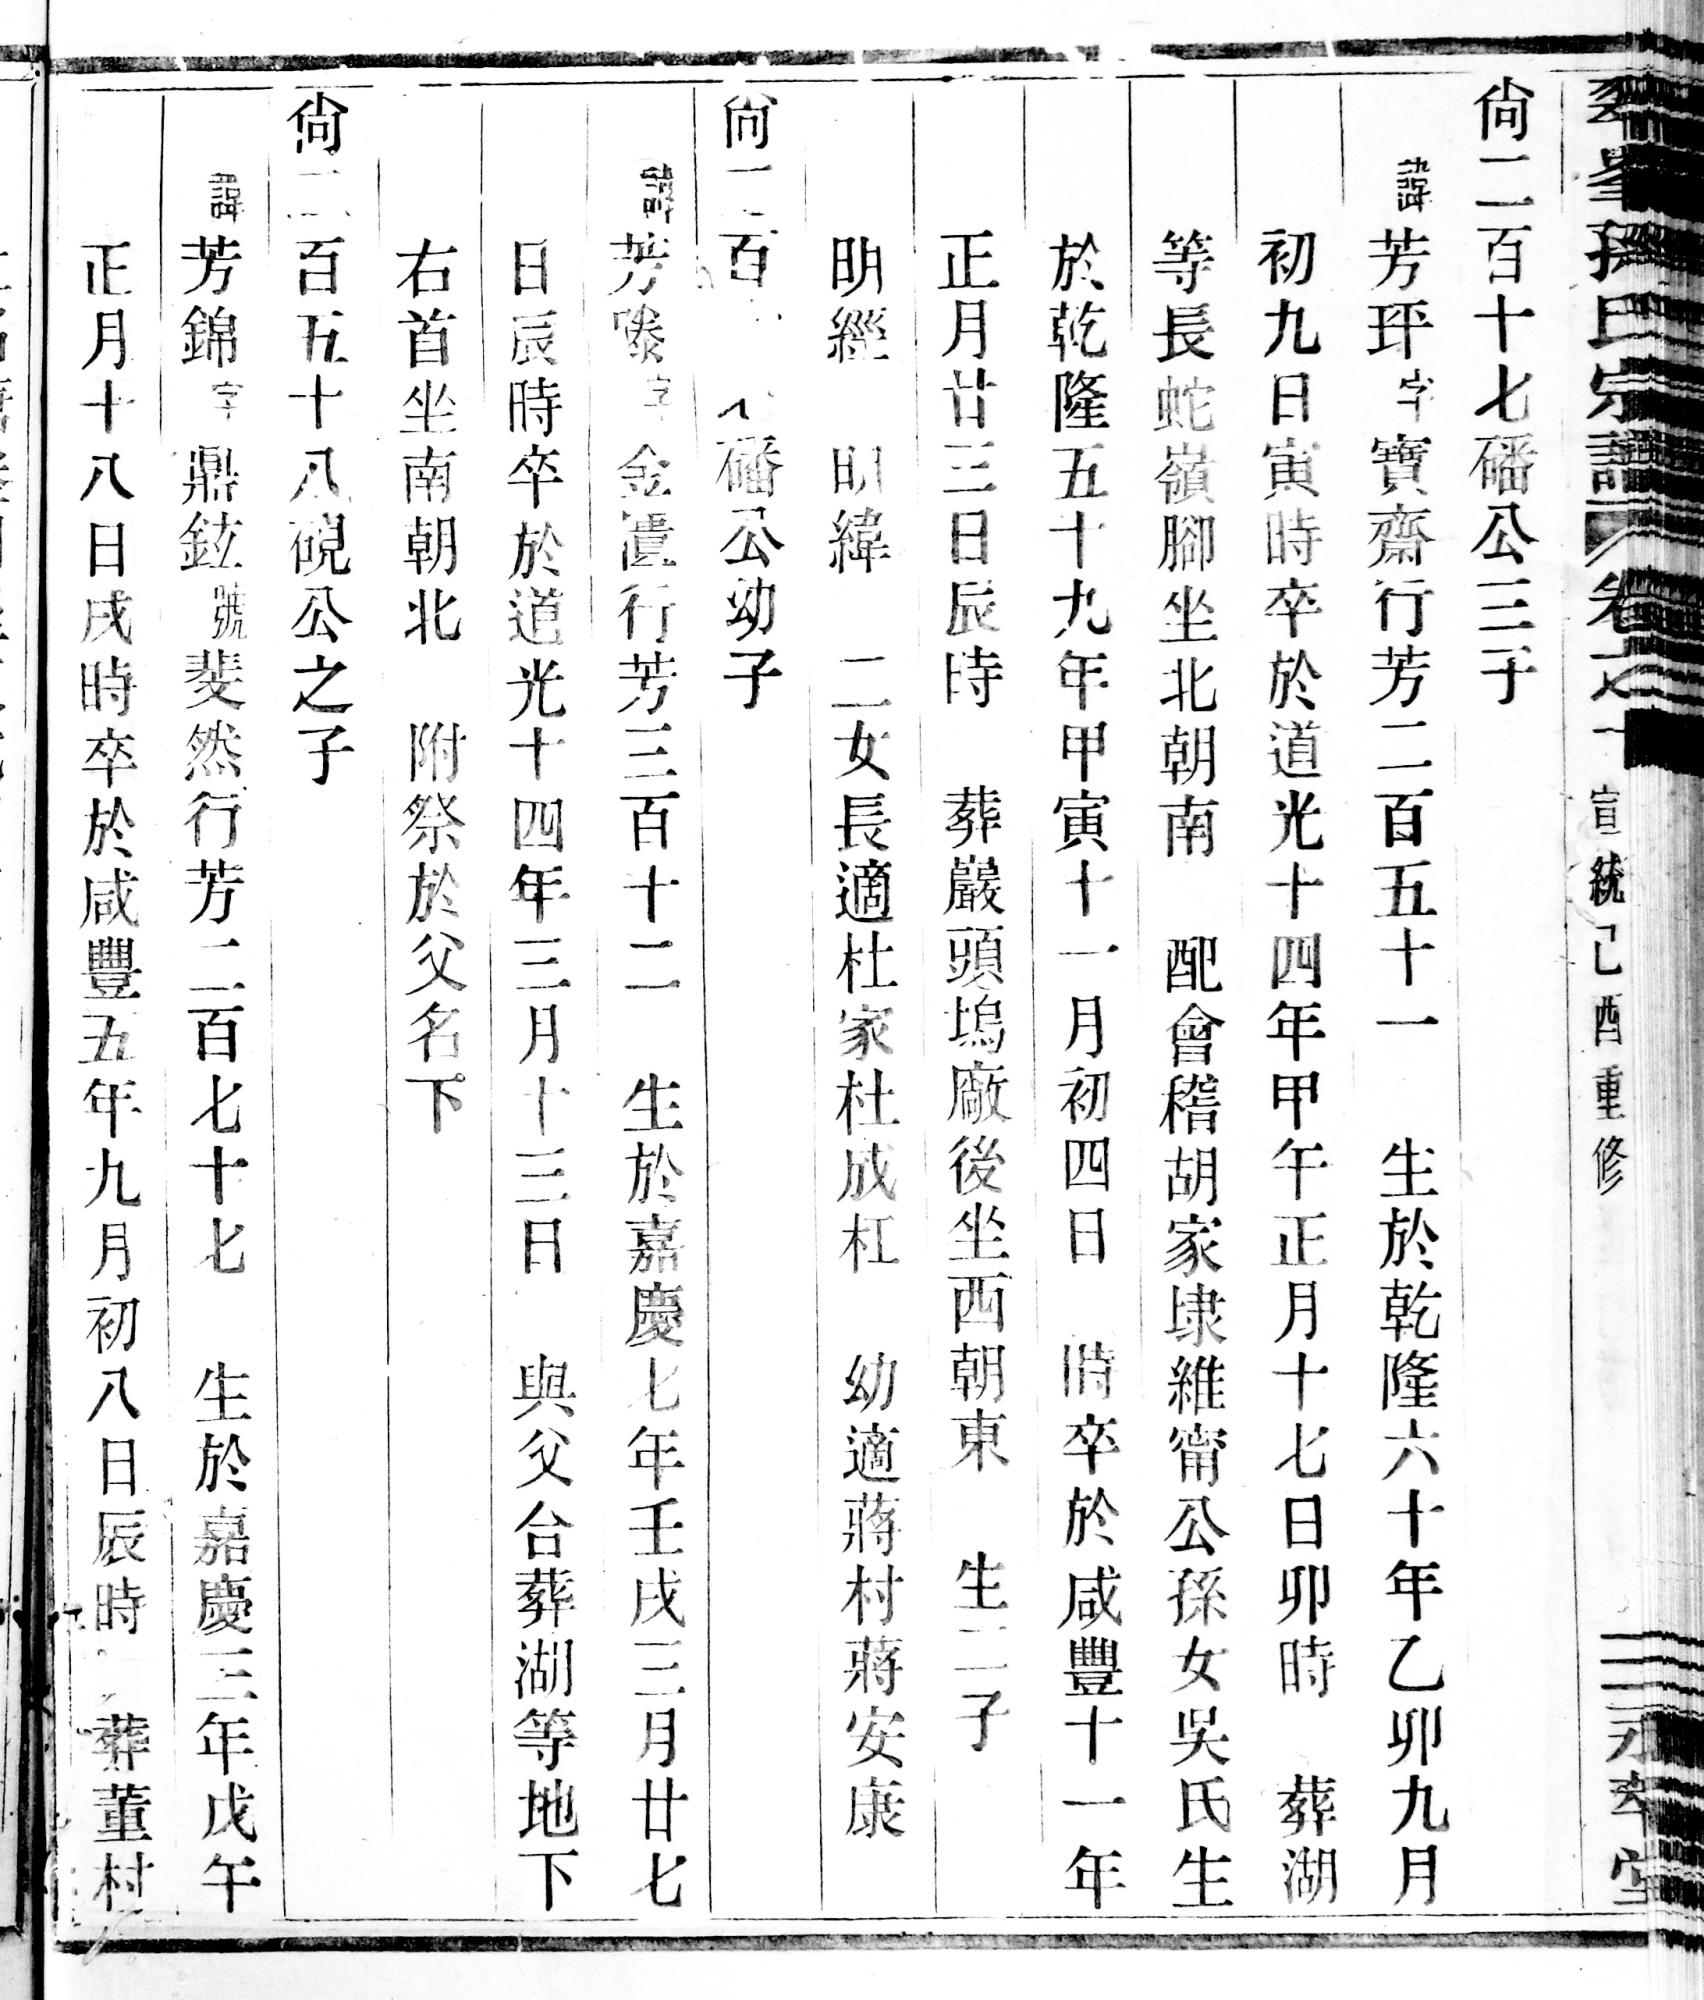 孫氏宗譜 卷之十 宣統己酉重修
尙二百十七磻公三子
諱芳玶字寶齋行芳二百五十一 生於乾隆六十年乙卯九月
初九日寅時卒於道光十四年甲午正月十七日卯時 葬湖
等長蛇嶺腳坐北朝南 配會稽胡家埭維甯公孫女吳氏生
於乾隆五十九年甲寅十一月初四日 時卒於咸豐十一年
正月廿三日辰時 葬嚴頭塢廠後坐西朝東 生二子
明經 明緯 二女長適杜家杜成杠 幼適蔣村蔣安康
尙二百 磻公幼子
諱芳 字金 行芳三百十二 生於嘉慶七年壬戌三月廿七
日辰時卒於道光十四年三月十三日 與父合葬湖等地下
右首坐南朝北 附祭於父名下
尙二百五十八硯公之子
諱芳錦字鼎鉉號斐然行芳二百七十七 生於嘉慶三年戊午
正月十八日戌時卒於咸豐五年九月初八日辰時 葬董村